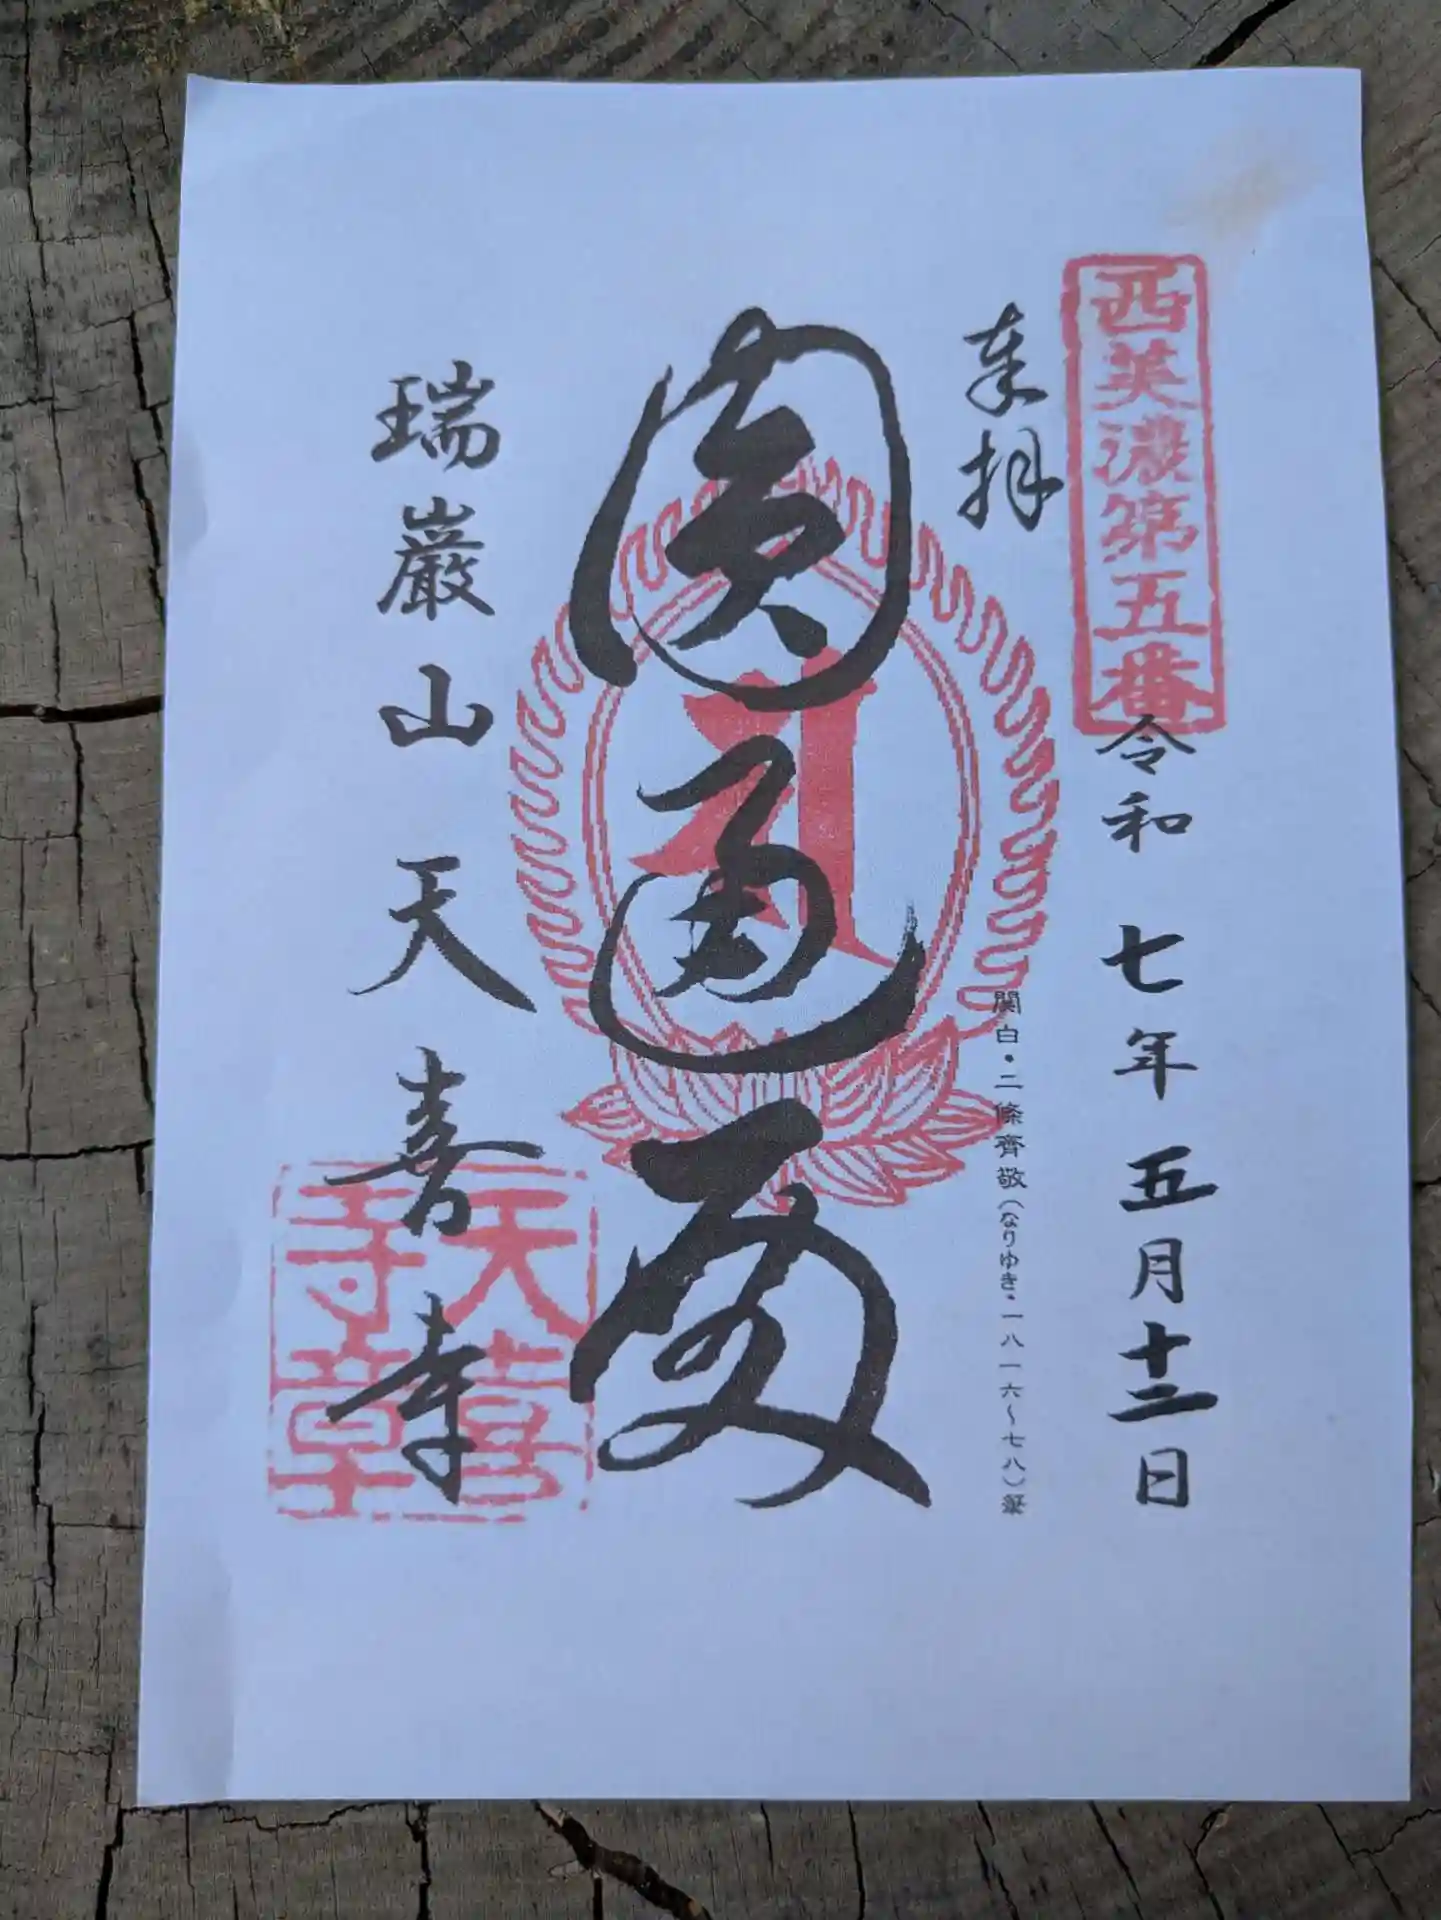 西美濃第五番
令和七年五月十二日
奉拝
関白・二條齊敬(なりゆき・一八一六〜七八)筆
圓通閣
瑞巌山天喜寺
天喜
寺章